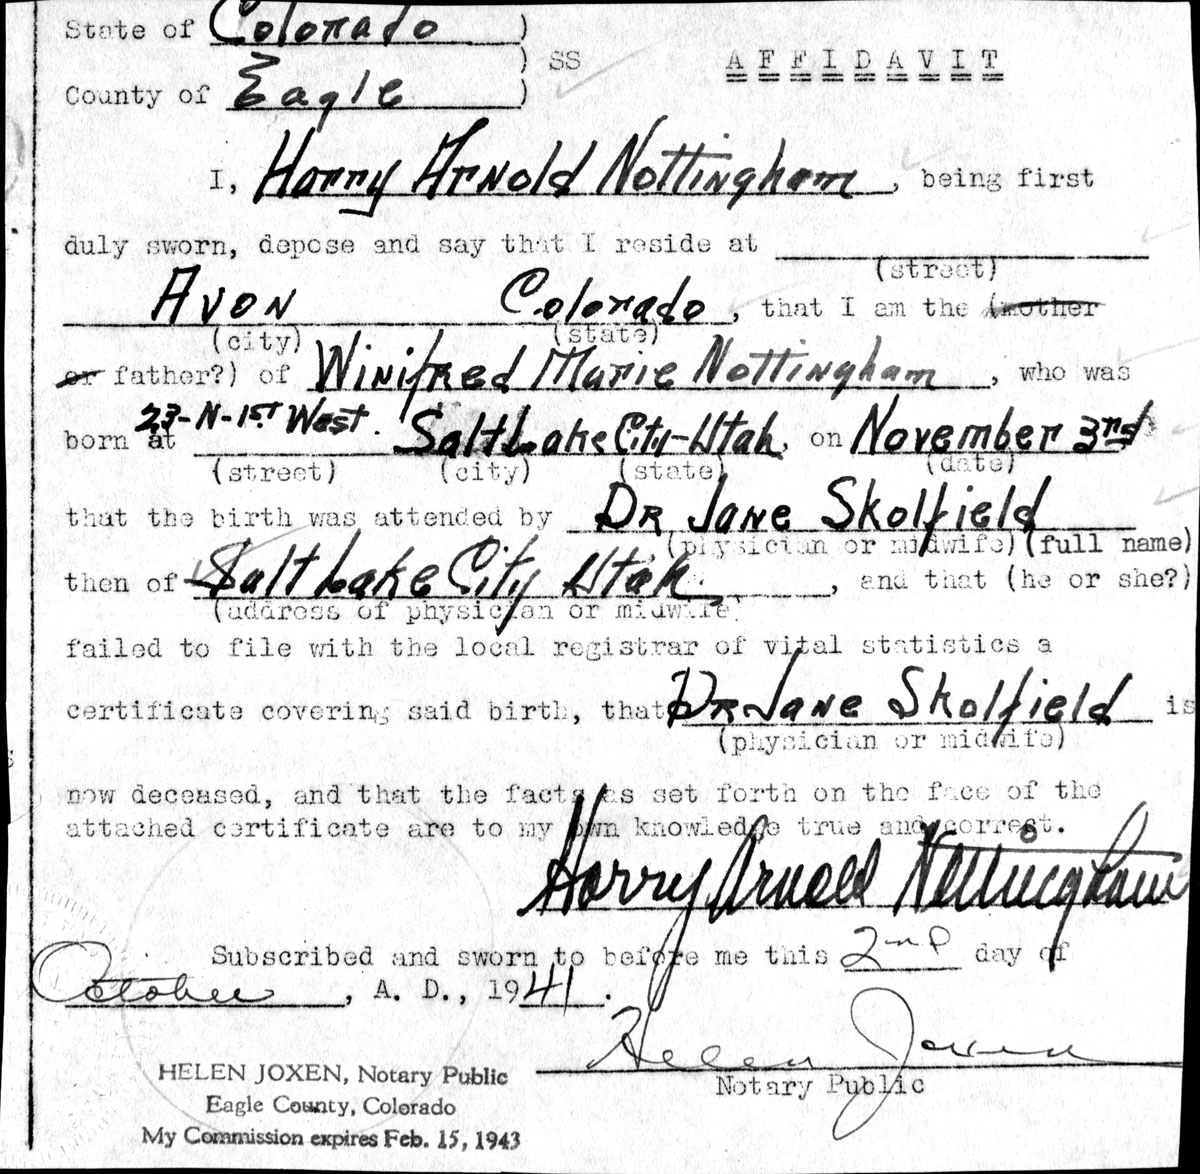 State of Colorado )
) SS AFFIDAVIT
County of Eagle )
I, Harry Arnold Nottingham, being first
duly sworn, depose and say that I reside at
(street)
Avon Colorado, that I am the (mother
(city) (state)
or father?) of Winifred Marie Nottingham, who was
23-N-1st West.
born at Salt Lake City-Utah on November 3rd
(street) (city) (state) (date)
that the birth was attended by Dr Jane Skolfield
(physician or midwife) (full name)
then of Salt Lake City Utah., and that (he or she?)
(address of physician or midwife)
failed to file with the local registrar of vital statistics a
certificate covering said birth, that Dr Jane Skolfield is
(physician or midwife)
now deceased, and that the facts as set forth on the face of the
attached certificate are to my own knowledge true and correct.
Harry Arnold Nottingham
Subscribed and sworn to before me this 2nd day of
October, A. D., 1941.
Helen Joxen
Notary Public
HELEN JOXEN, Notary Public
Eagle County, Colorado
My Commission expires Feb. 15, 1943